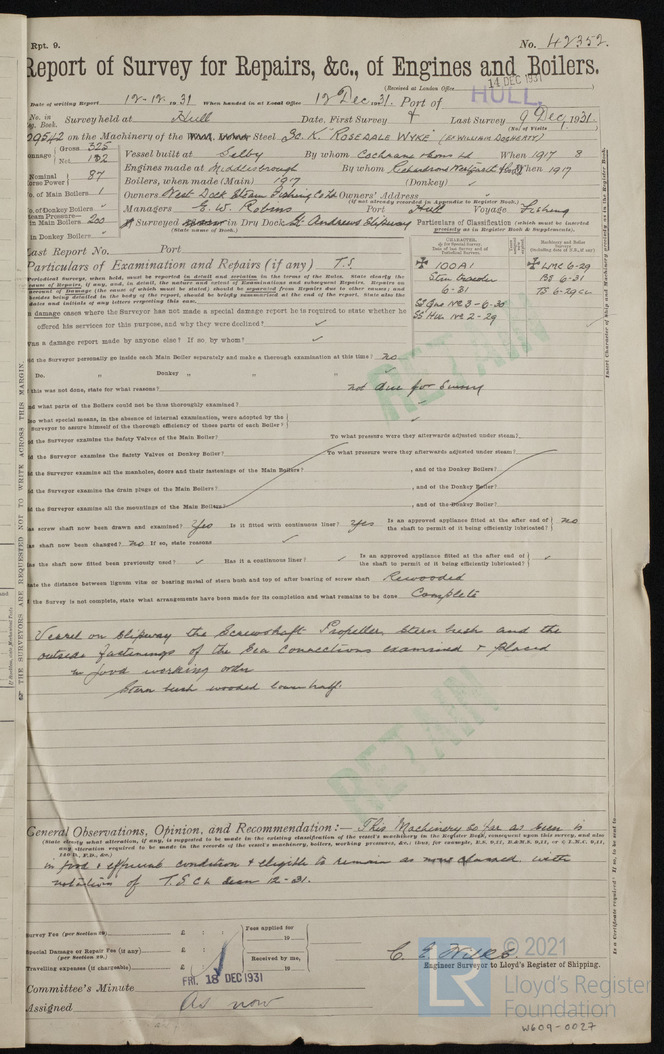 Rpt. 9. No. 42352.
Report of Survey for Repairs, &c., of Engines and Boilers.
(Received at London Office 14 DEC 1931
Date of writing Report 12-12-1931 When handed in at Local Office 12 Dec 1931. Port of HULL.
No. in Reg. Book. Survey held at Hull Date, First Survey Last Survey 9 Dec. 1931.
(No. of Visits
29542 on the Machinery of the Steel Sc. K. "ROSEDALE WYKE" (Ex WILLIAM DOGHERTY)
Gross 325
Net 132
Vessel built at Selby By whom Cochrane & Sons Ld When 1917 8
Nominal Horse Power 87
Engines made at Middlesbrough By whom Richardsons Westgarth & Co Ld When 1917
No. of Main Boilers 1
Boilers, when made (Main) 1917 (Donkey) ✓
No. of Donkey Boilers ✓
Owners West Dock Steam Fishing Co Ld Owners' Address
(If not already recorded in Appendix to Register Book.)
Steam Pressure— in Main Boilers 200
Managers E. W. Robins Port Hull Voyage Fishing
in Donkey Boilers ✓
If Surveyed in Dry Dock St Andrews Slipway
(State name of Dock.)
Particulars of Classification (which must be inserted precisely as in Register Book & Supplements).
Last Report No. Port
Particulars of Examination and Repairs (if any) T.S
100A1
Stm Trawler
6-31
SS Gra No 3-6-30
SS Hul No 2-29
LMC 6-29
BS 6-31
TS 6-29 CL
In damage cases where the Surveyor has not made a special damage report he is required to state whether he
offered his services for this purpose, and why they were declined? ✓
Was a damage report made by anyone else? If so, by whom? ✓
Did the Surveyor personally go inside each Main Boiler separately and make a thorough examination at this time? no
Do. " Donkey " " " ✓
If this was not done, state for what reasons? not due for Survey
And what parts of the Boilers could not be thus thoroughly examined?
Also what special means, in the absence of internal examination, were adopted by the
Surveyor to assure himself of the thorough efficiency of those parts of each Boiler?
Did the Surveyor examine the Safety Valves of the Main Boiler? To what pressure were they afterwards adjusted under steam?
Did the Surveyor examine the Safety Valves of Donkey Boiler? To what pressure were they afterwards adjusted under steam?
Did the Surveyor examine all the manholes, doors and their fastenings of the Main Boilers? , and of the Donkey Boilers?
Did the Surveyor examine the drain plugs of the Main Boilers? , and of the Donkey Boiler?
Did the Surveyor examine all the mountings of the Main Boilers? , and of the Donkey Boiler?
Has screw shaft now been drawn and examined? Yes Is it fitted with continuous liner? Yes Is an approved appliance fitted at the after end of the shaft to permit of it being efficiently lubricated? no
Has shaft now been changed? no If so, state reasons ✓
Has the shaft now fitted been previously used? ✓ Has it a continuous liner? ✓ Is an approved appliance fitted at the after end of the shaft to permit of it being efficiently lubricated? ✓
State the distance between lignum vitæ or bearing metal of stern bush and top of after bearing of screw shaft Rewooded
If the Survey is not complete, state what arrangements have been made for its completion and what remains to be done Complete
Vessel on Slipway the Screwshaft Propeller, Stern bush and the
outside fastenings of the Sea Connections examined & placed
in good working order
Stern bush wooded lower half.
RETAIN
RETAIN
General Observations, Opinion, and Recommendation:— This Machinery so far as seen is
(State clearly what alteration, if any, is suggested to be made in the existing classification of the vessel's machinery in the Register Book, consequent upon this survey, and also
any alteration required to be made in the records of the vessel's machinery, boilers, working pressures, &c.; thus, for example, B.S. 9,11, B.&M.S. 9,11, or L.M.C. 9,11,
140 lb., F.D., &c.)
in good & efficient condition & eligible to remain as now classed with
notation of T.S CL seen 12-31.
Survey Fee (per Section 29) £ : :
Special Damage or Repair Fee (if any) £ : :
(per Section 29.)
Travelling expenses (if chargeable) £ : :
Fees applied for
19
Received by me,
19
C. E. Wilks
Engineer Surveyor to Lloyd's Register of Shipping.
Committee's Minute FRI. 18 DEC 1931
Assigned As now
THE SURVEYORS ARE REQUESTED NOT TO WRITE ACROSS THIS MARGIN.
Insert Character of Ship and Machinery precisely as in the Register Book.
Is a Certificate required? If so, to be sent to
© 2021
LR
Lloyd's Register
Foundation
W609-0027